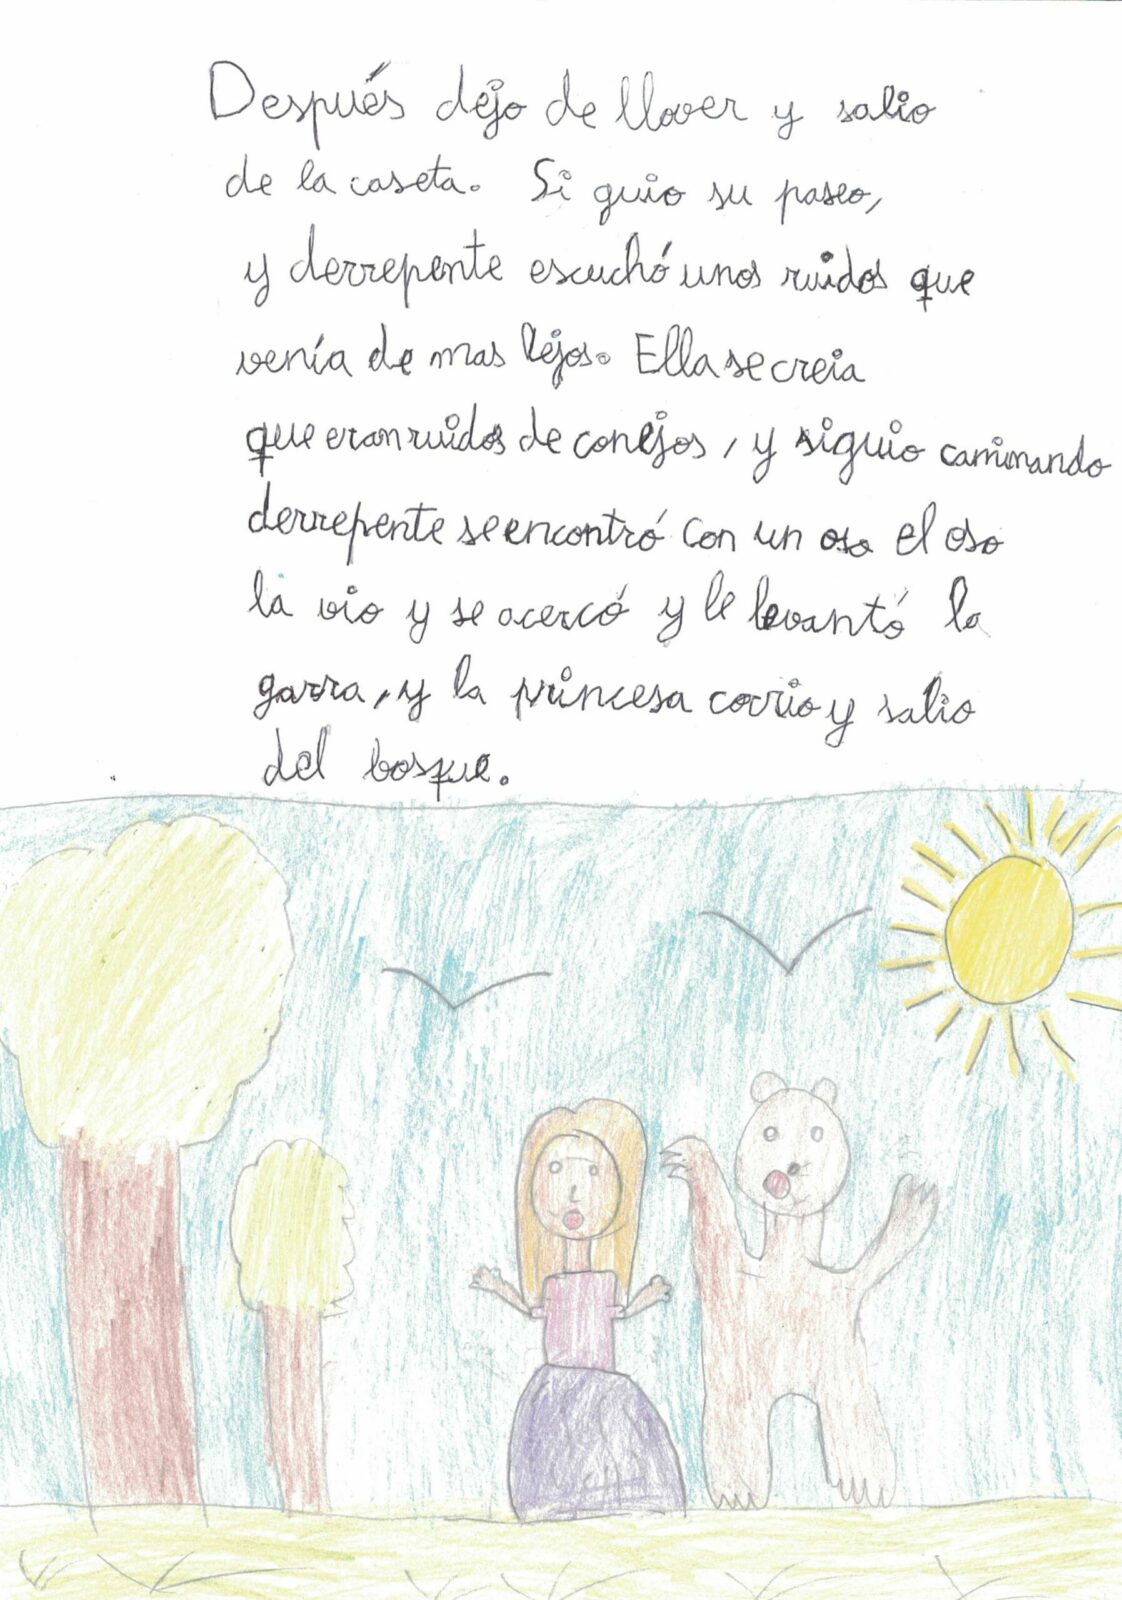 Después dejo de llover y salio
de la caseta. Si guio su paseo,
y derrepente escuchó unos ruidos que
venía de mas lejos. Ella se creia
que eran ruidos de conejos, y siguio caminando
derrepente se encontró con un oso el oso
la vio y se acercó y le levantó la
garra, y la princesa corrio y salio
del bosque.